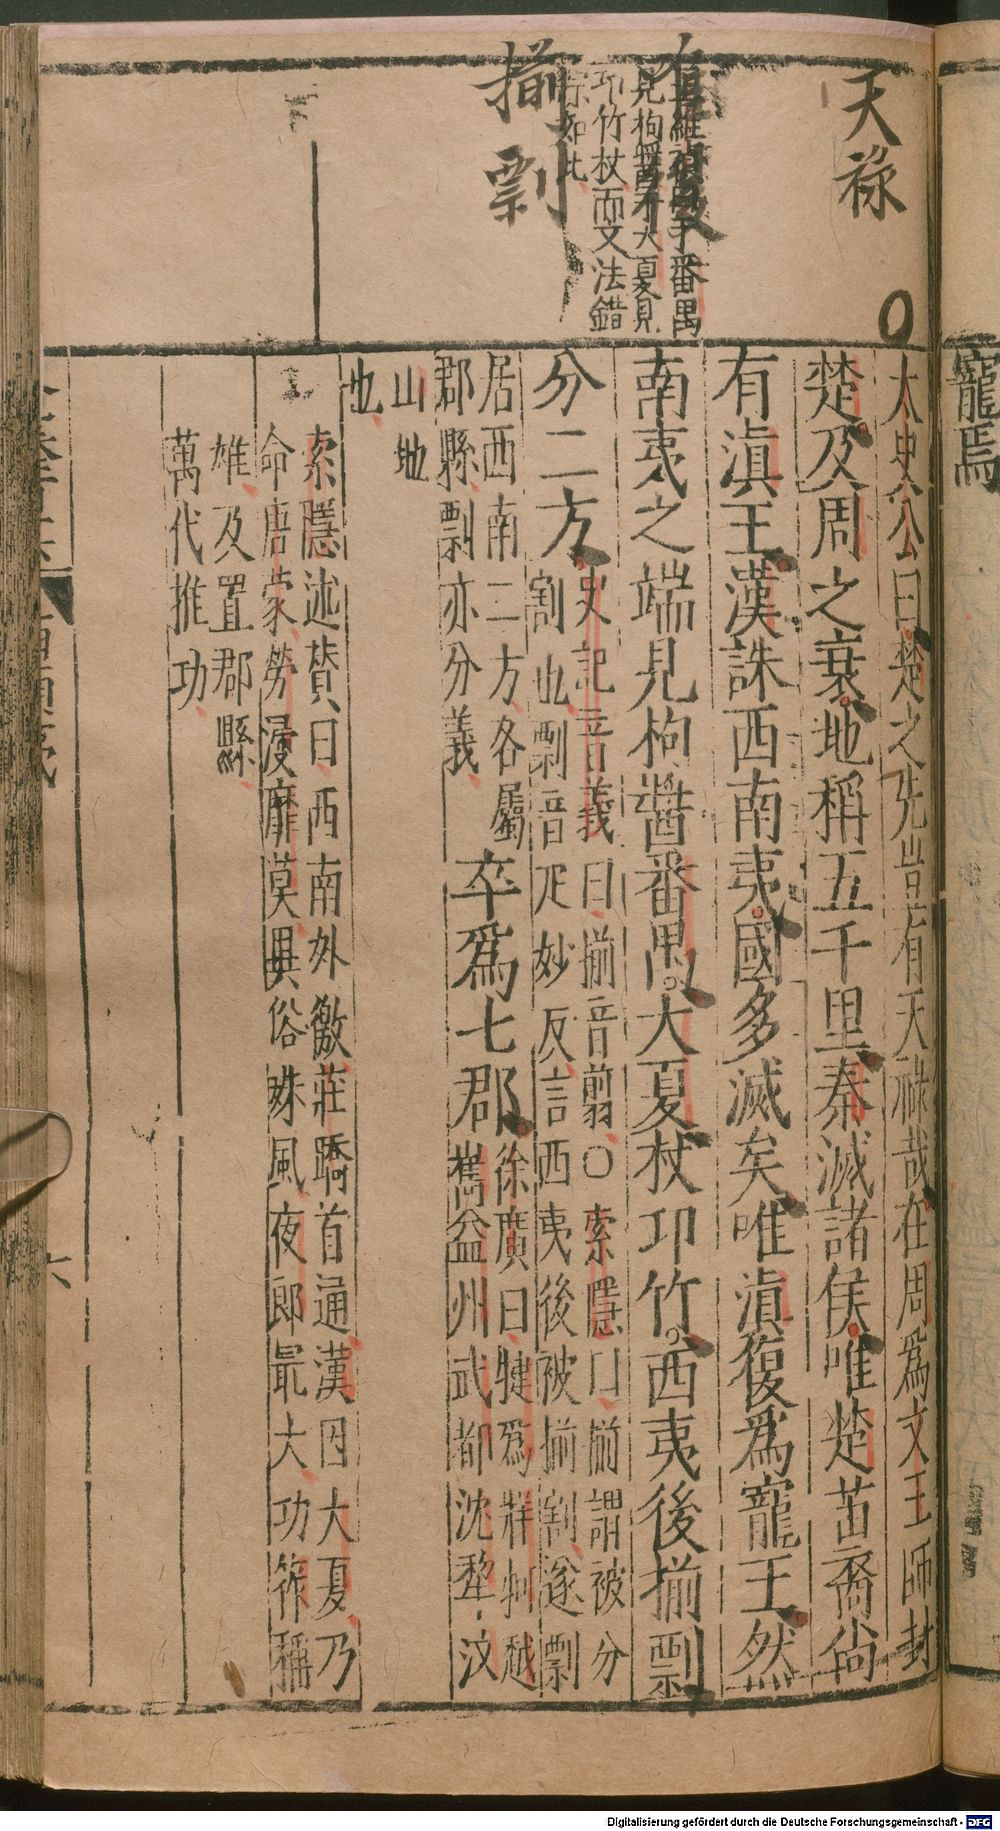 天祿
有復
直維禎曰于番禺
見枸醬于大夏見
卭竹杖而文法錯
綜如此
揃剽
太史公曰楚之先豈有天祿哉在周爲文王師封
楚及周之衰地稱五千里秦滅諸侯唯楚苗裔尚
有滇王漢誅西南夷國多滅矣唯滇復爲寵王然
南夷之端見枸醬番禺大夏杖卭竹西夷後揃剽
分二方
史記音義曰揃音翦○索隱曰揃謂被分
割也剽音疋妙反言西夷後被揃割遂剽
居西南二方各屬
郡縣剽亦分義
卒爲七郡
徐廣曰犍爲牂牁越
巂益州武都沈犂汶
山地
也
索隱述贊曰西南外徼莊蹻首通漢因大夏乃
命唐蒙勞浸靡莫異俗殊風夜郎最大卭筰稱
雄及置郡縣
萬代推功
六
寵焉
Digitalisierung gefördert durch die Deutsche Forschungsgemeinschaft - DFG